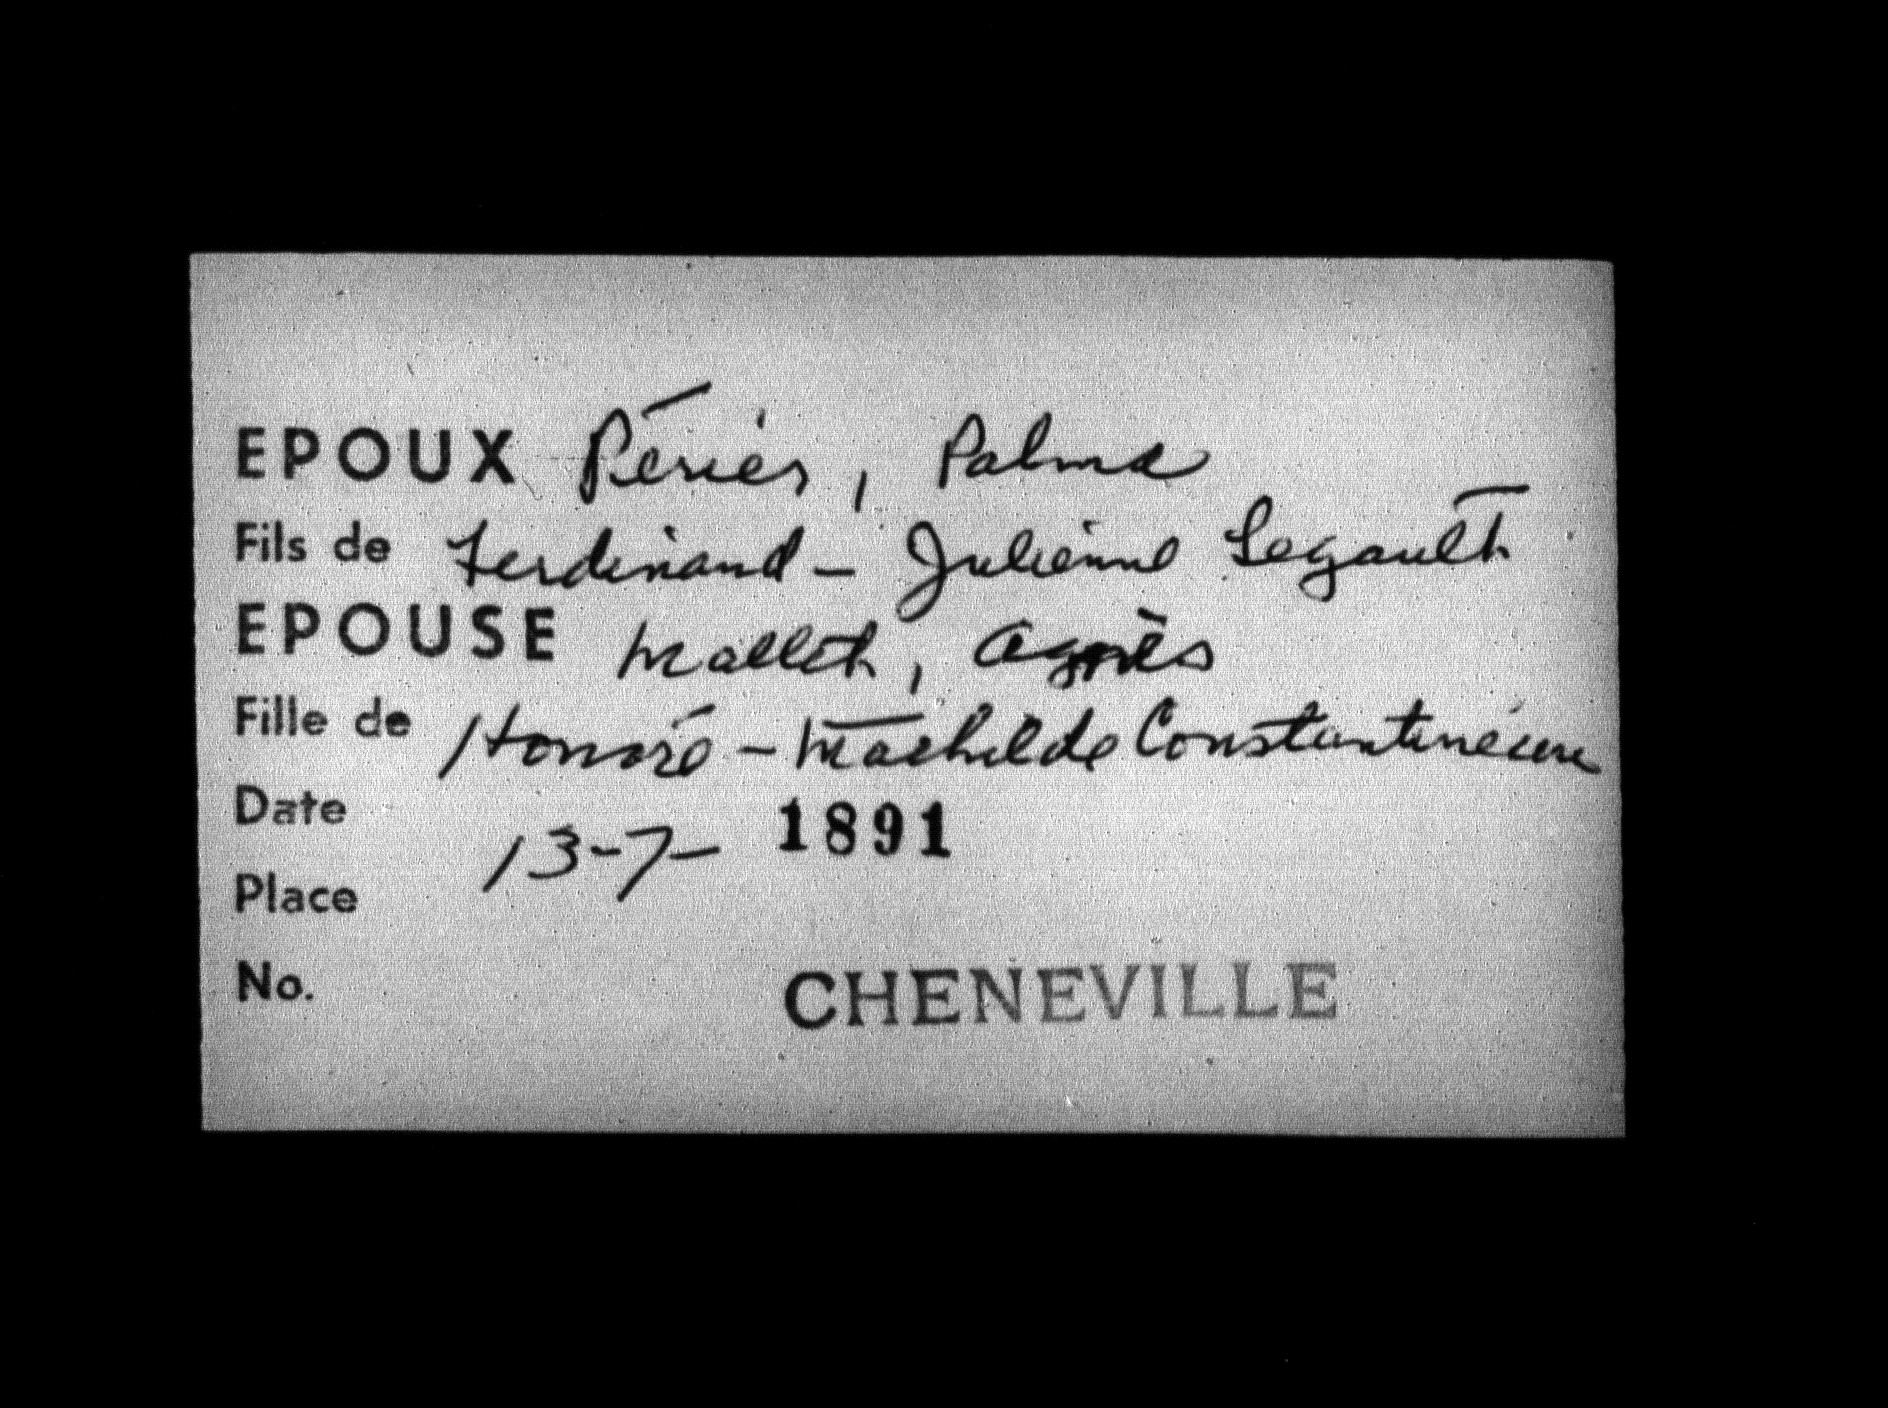 EPOUX Périer, Palma
Fils de Ferdinand - Julienne Legault
EPOUSE Mallet, Agnès
Fille de Honoré - Mathilde Constantineau
Date 13-7- 1891
Place
No. CHENEVILLE